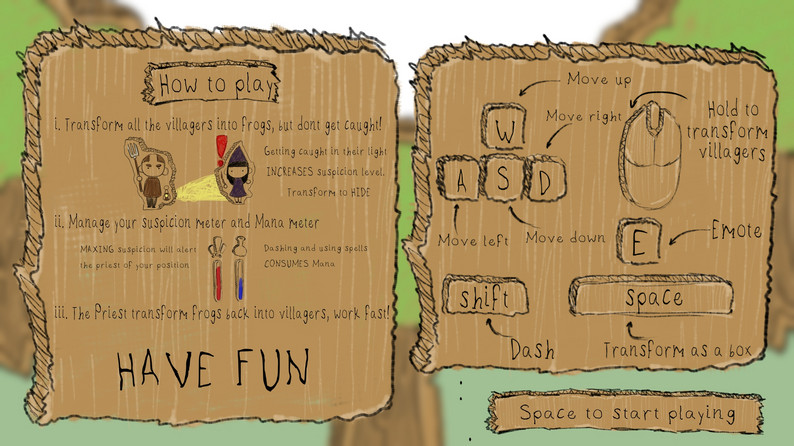 How to play
i. Transform all the villagers into frogs, but dont get caught!
Getting caught in their light
INCREASES suspicion level.
Transform to HIDE
ii. Manage your suspicion meter and Mana meter
MAXING suspicion will alert
the priest of your position
Dashing and using spells
CONSUMES Mana
iii. The Priest transform frogs back into villagers, work fast!
HAVE FUN
Move up
W
Move right
A S D
Move left
Move down
Hold to
transform
villagers
E
Emote
shift
space
Dash
Transform as a box
Space to start playing